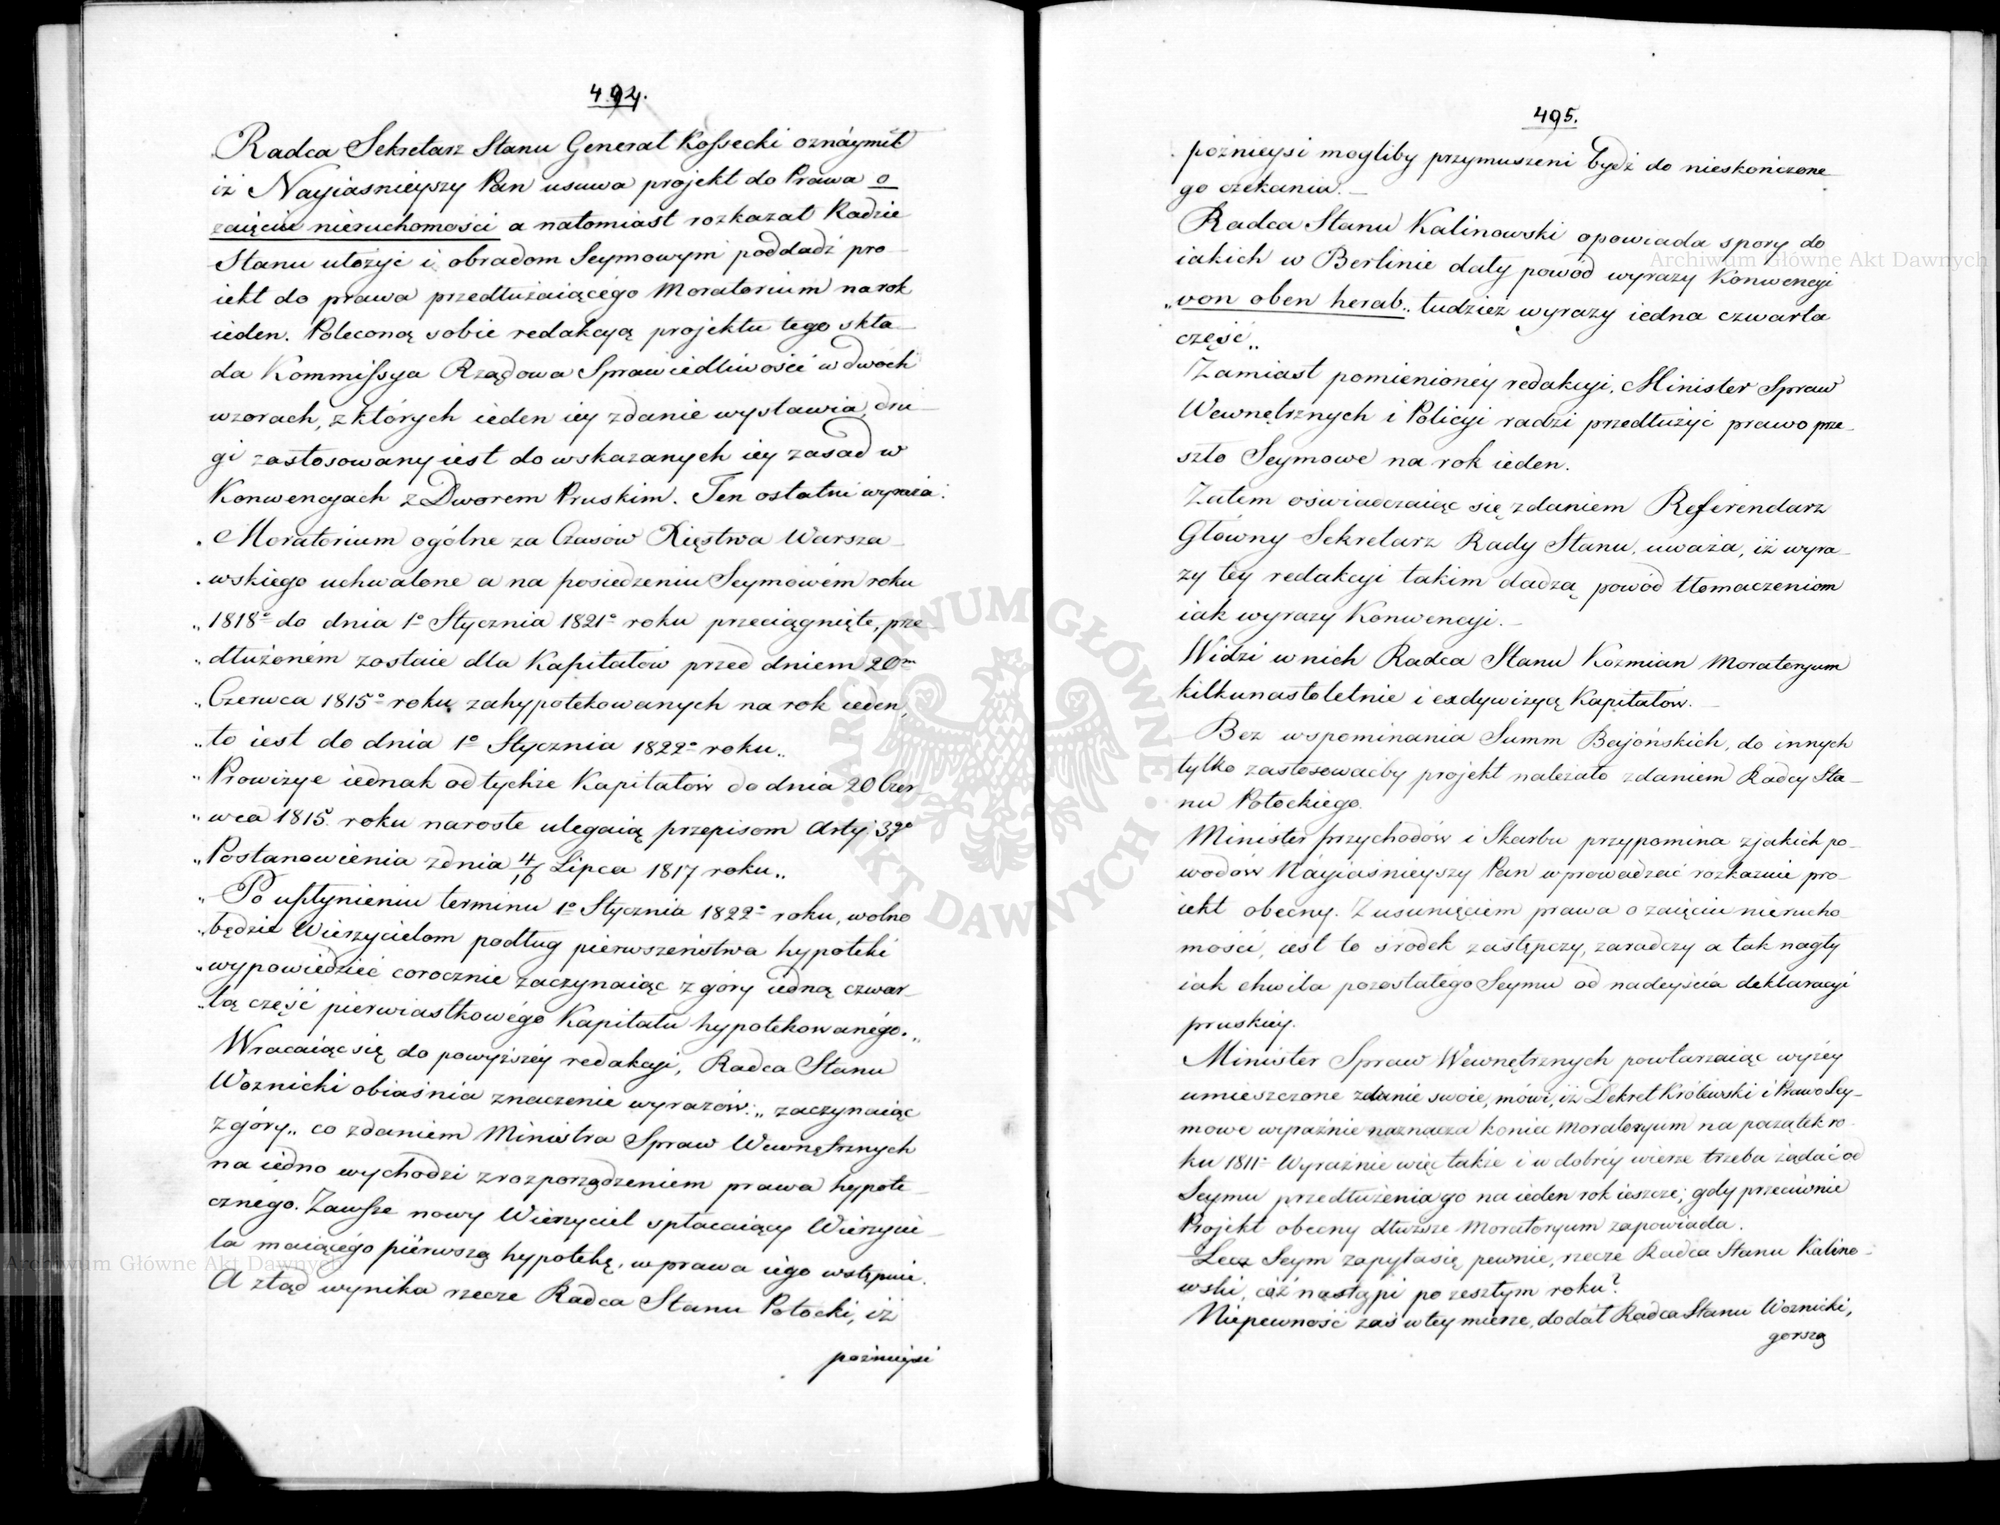 494.
Radca Sekretarz Stanu Generał Kossecki oznáymił
iż Nayiasnieyszy Pan usuwa projekt do Prawa o
zaięciu nieruchomości a natomiast rozkazał Radzie
Stanu ułożyć i obradom Seymowym poddadź pro-
iekt do prawa przedłużaiącégo Moratorium na rok
ieden. Poleconą sobie redakcyą projektu tego skła-
da Kommissya Rządowa Sprawiedliwości w dwóch
wzorach, z których ieden iey zdanie wystawia, dru-
gi zastosowany iest do wskazanych iey zasad w
Konwencyach z Dworem Pruskim. Ten ostatni wyraża:
„Moratorium ogólne za Czasów Xięstwa Warsza-
„wskiego uchwalone a na posiedzeniu Seymowém roku
„1818º do dnia 1º Stycznia 1821º roku przeciągnięte, prze-
„dłużoném zostaie dla Kapitałów przed dniem 20m
„Czerwca 1815º roku zahypotekowanych na rok ieden,
„to iest do dnia 1º Stycznia 1822º roku„
„Prowizye iednak od tychże Kapitałów do dnia 20 Czer
„wca 1815 roku narosłe ulegaią przepisom Arty: 37º
„Postanowienia z dnia 4/16 Lipca 1817 roku„
„Po upłynieniu terminu 1º Stycznia 1822º roku, wolno
„będzie Wierzycielom podług pierwszeństwa hypoteki
„wypowiedzieć corocznie zaczynaiąc z góry iedną czwar-
„tą część pierwiastkowégo Kapitału hypotekowanégo„
Wracaiąc się do powyższéy redakcyi, Radca Stanu
Woznicki obiaśnia znaczenie wyrazów: „zaczynaiąc
z góry„ co zdaniem Ministra Spraw Wewnętrznych
na iedno wychodzi z rozporządzeniem prawa hypote-
cznégo. Zawsze nowy Wierzyciel spłacaiący Wierzycie
la maiącégo piérwszą hypotekę, w prawa iego wstępuie.
A ztąd wynika rzecze Radca Stanu Potocki, iż
poźnieysi
495.
poźnieysi mogliby przymuszeni bydź do nieskończone-
go czekania. _
Radca Stanu Kalinowski opowiada spory do
iakich w Berlinie dały powód wyrazy Konwencyi
„von oben herab„ tudzież wyrazy iedna czwarta
część„
Zamiast pomienionéy redakcyi, Minister Spraw
Wewnętrznych i Policyi radzi przedłużyć prawo prze-
szło Seymowe na rok ieden.
Zatem oświadczaiąc się zdaniem Referendarz
Główny Sekretarz Rady Stanu, uważa, iż wyra-
zy téy redakcyi takim dadzą powód tłomaczeniom
iak wyrazy Konwencyi. _
Widzi w nich Radca Stanu Kozmian Moratoryum
kilkunastoletnie i exdywizyą Kapitałów. _
Bez wspominania Summ Bajońskich, do innych
tylko zastosowaćby projekt należało zdaniem Radcy Sta-
nu Potockiego.
Minister Przychodów i Skarbu przypomina z jakich po-
wodów Náyiaśnieyszy Pan wprowadzać rozkazuie pro-
iekt obecny. Z usunięciem prawa o zaięciu nierucho-
mości, iest to środek zastępczy, zaradczy a tak nagły
iak chwila pozostałego Seymu od nadeyścia deklaracyi
pruskiéy.
Minister Spraw Wewnętrznych powtarzaiąc wyżéy
umieszczone zdanie swoie, mówi, iż Dekret Królewski i Prawo Sey-
mowe wyraźnie naznacza koniec Moratoryum na początek ro-
ku 1811º Wyraźnie więc także i w dobréy wierze trzeba żądać od
Seymu przedłużenia go na ieden rok ieszcze; gdy przeciwnie
Projekt obecny dłuższe Moratoryum zapowiada.
Lecz Seym zapyta się pewnie, rzecze Radca Stanu Kalino-
wski, cóż nastąpi po zeszłym roku?
Niepewność zaś w téy mierze, dodał Radca Stanu Woznicki,
gorszą
Archiwum Główne Akt Dawnych
Archiwum Główne Akt Dawnych
ARCHIWUM GŁÓWNE · AKT DAWNYCH ·